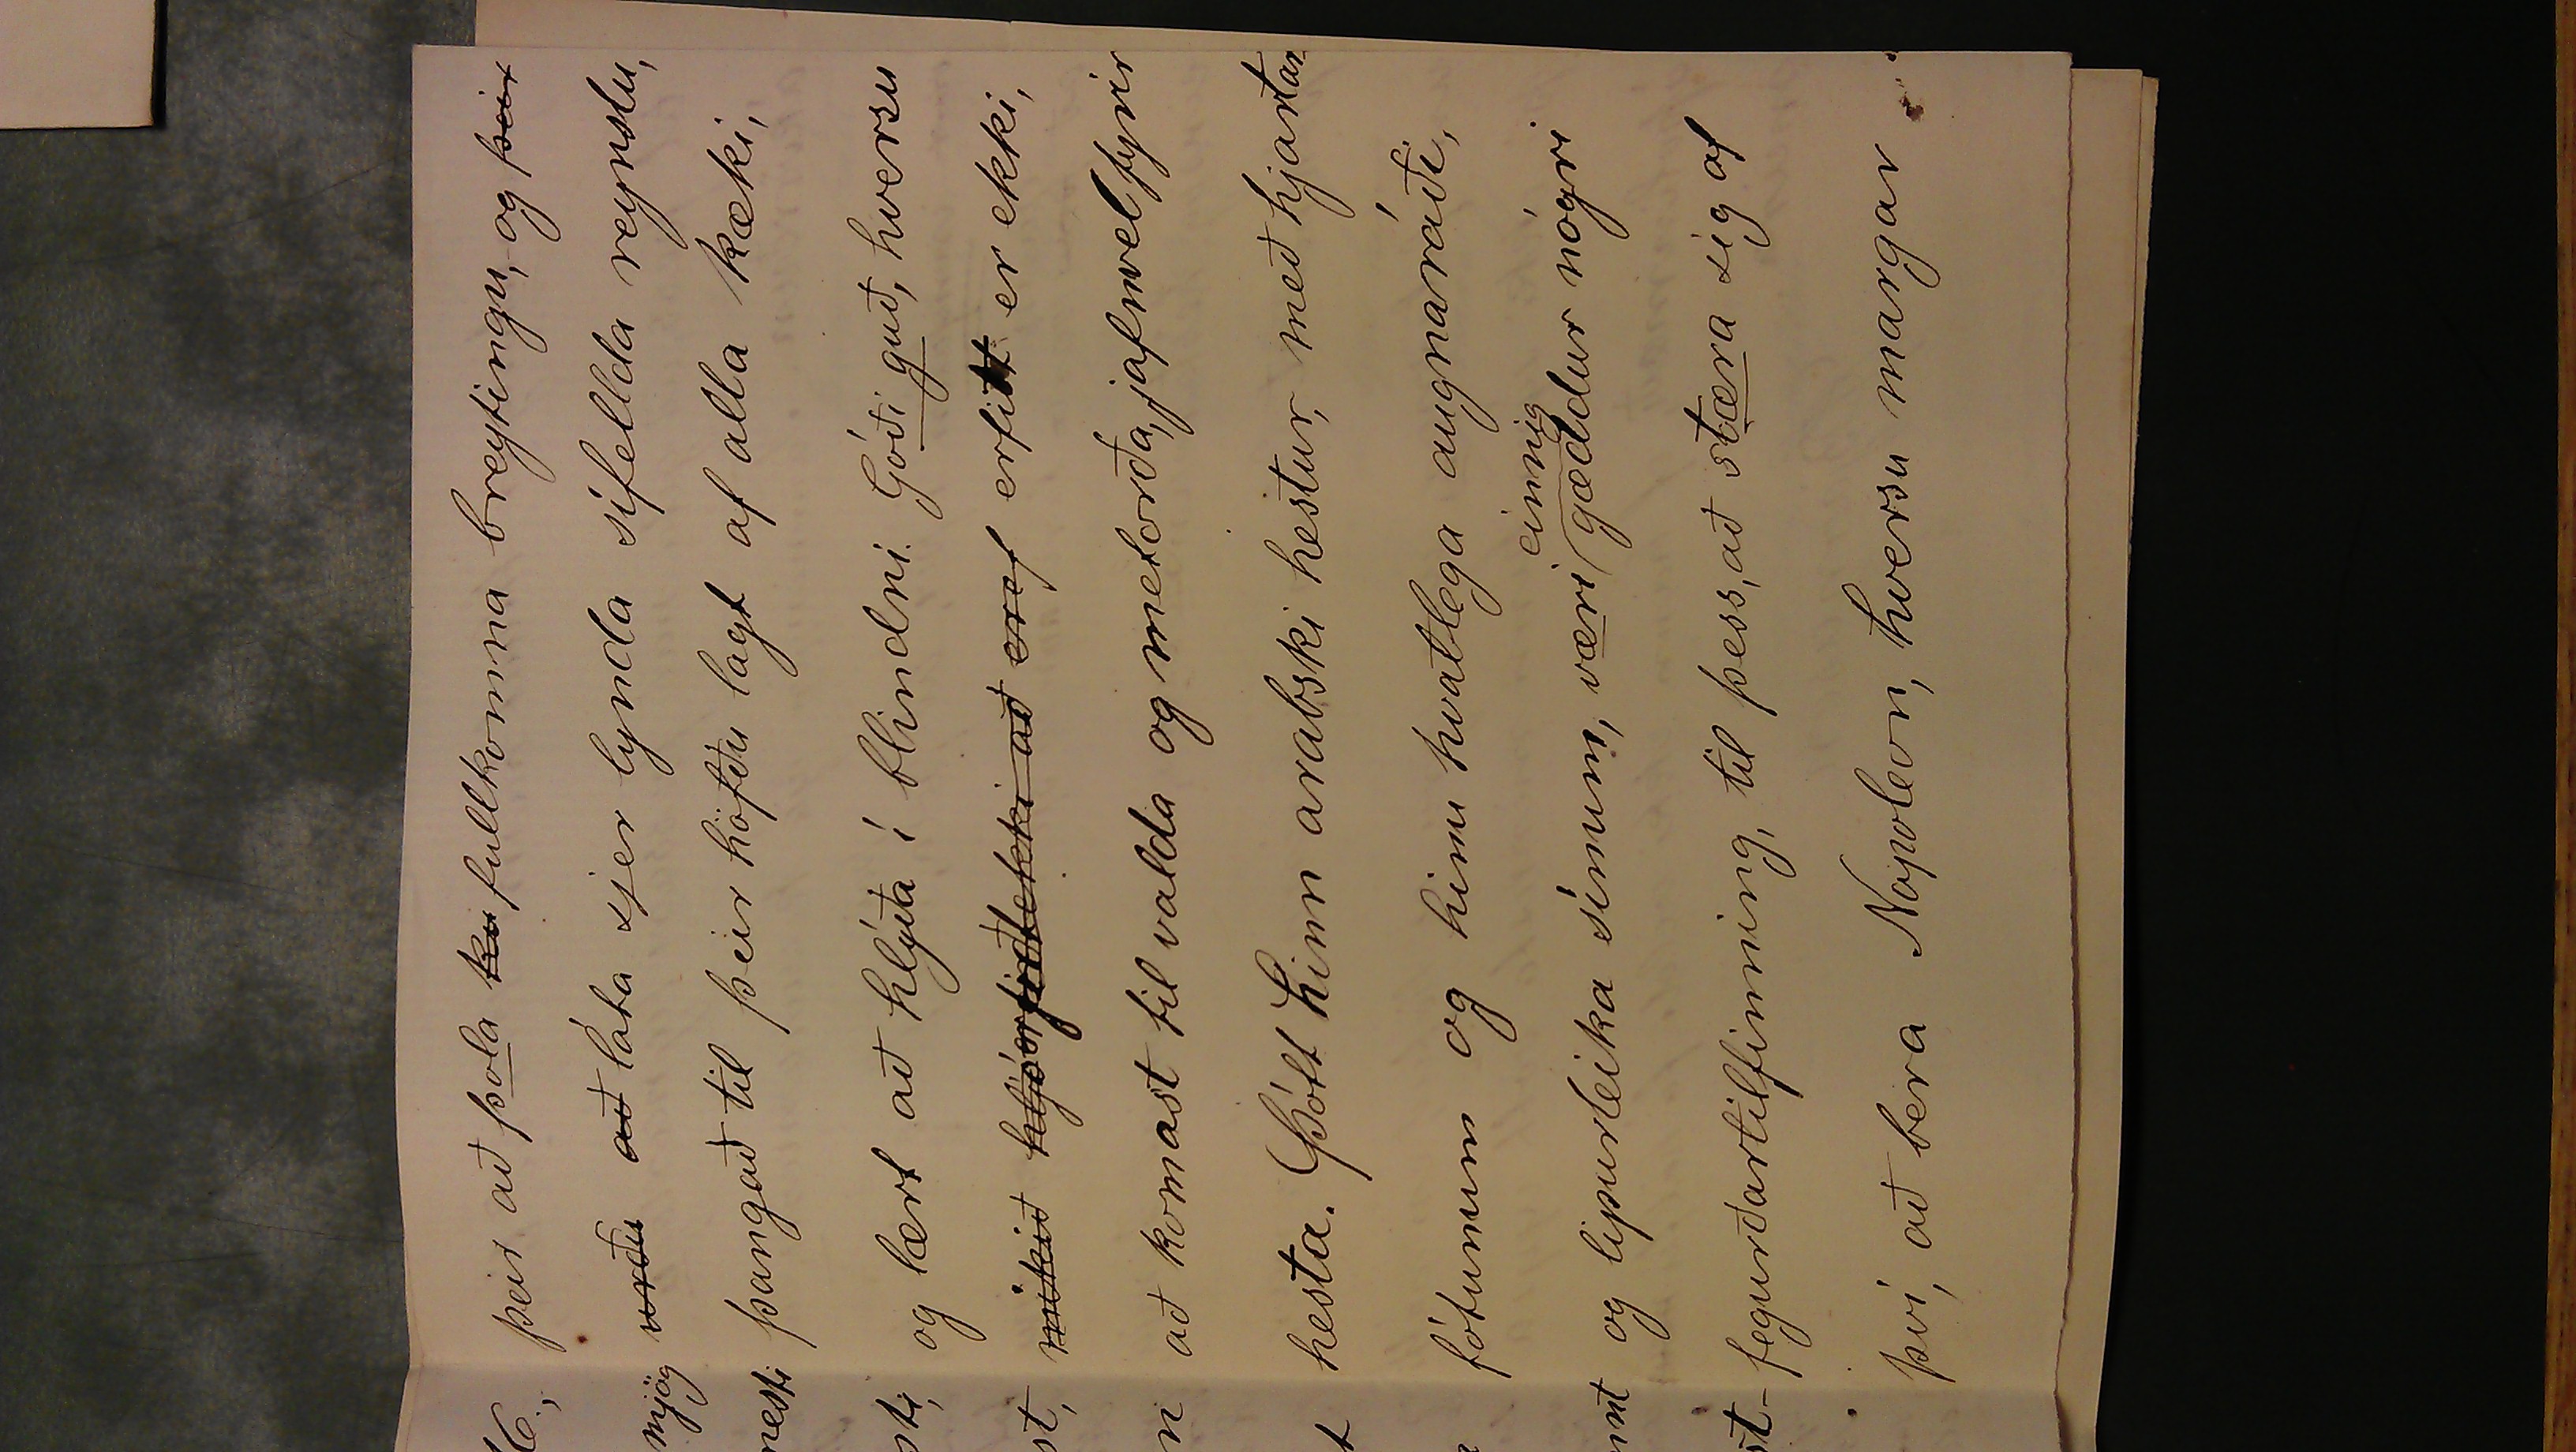 þeir að þola ko fullkomna breytingu, og þeir
vorðu að láta sjer lynda sífellda reynslu,
þangað til þeir höfðu lagt af alla kæki,
og lært að hlýða í blindni. Góði guð, hversu
mikið erfitt er ekki,
að komast til valda og metorða, jafnvel fyrir
hesta. Þótt hinn arabski hestur, með hjartan
fótunum og hinu hvatlega augnaráði,
einnig
og lipurleika sínum, væri gæddur nógri
fegurðartilfinning, til þess, að stæra sig af
því, að bera Napoleon, hversu margar
mjög
nesti